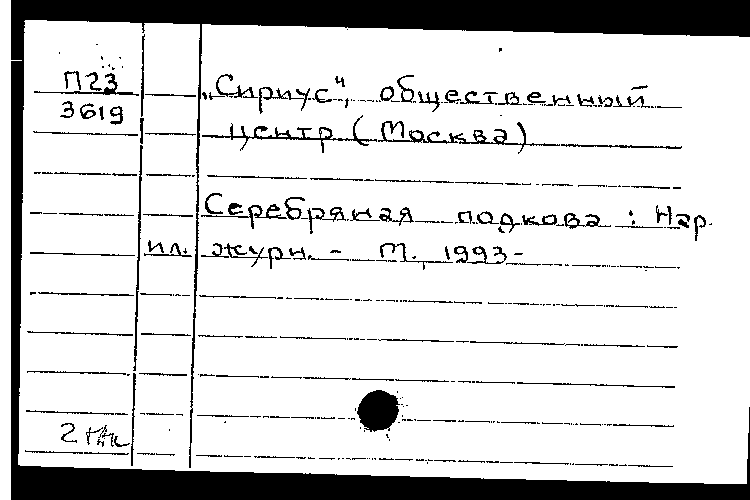 П23
3619
„Сириус“, общественный
центр (Москва)
Серебряная подкова : Нар.
ил. журн. - М., 1993-
2